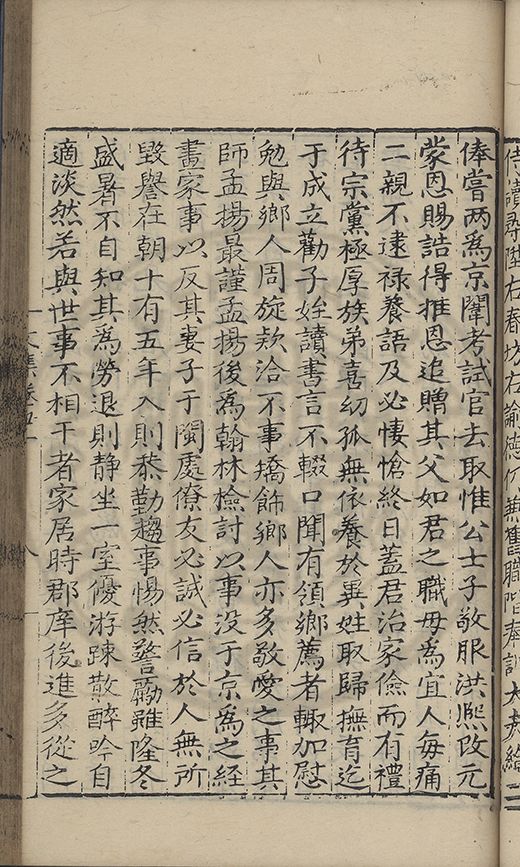 侍讀尋陞右春坊右諭德仍兼舊職階奉訓大夫給
俸嘗两為京闈考試官去取惟公士子敬服洪熈改元
蒙恩賜誥得推恩追贈其父如君之職母為宜人每痛
二親不逮禄養語及必悽愴終日蓋君治家儉而有禮
待宗黨極厚族弟喜幼孤無依養於異姓取歸撫育迄
于成立勸子姪讀書言不輟口聞有領鄉薦者輙加慰
勉與鄉人周旋欵洽不事撟飾鄉人亦多敬愛之事其
師孟揚最謹孟揚後為翰林檢討以事没于京為之經
畫家事以反其妻子于閩處僚友必誠必信於人無所
毀譽在朝十有五年入則恭勤趨事惕然警勵雖隆冬
盛暑不自知其為勞退則静坐一室優游踈散醉吟自
適淡然若與世事不相干者家居時郡庠後進多從之
文集卷五
八